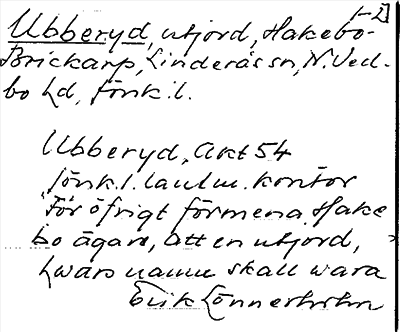 1-2]
Ubberyd, utjord, Hakebo-
Brickarp, Linderås sn, N. Ved-
bo hd, Jönk. l.
Ubberyd, Akt 54
Jönk. l. lantm. kontor
"För öfrigt förmena Hake
bo ägare, att en utjord,
hwars namn skall wara
Erik Lönnerholm